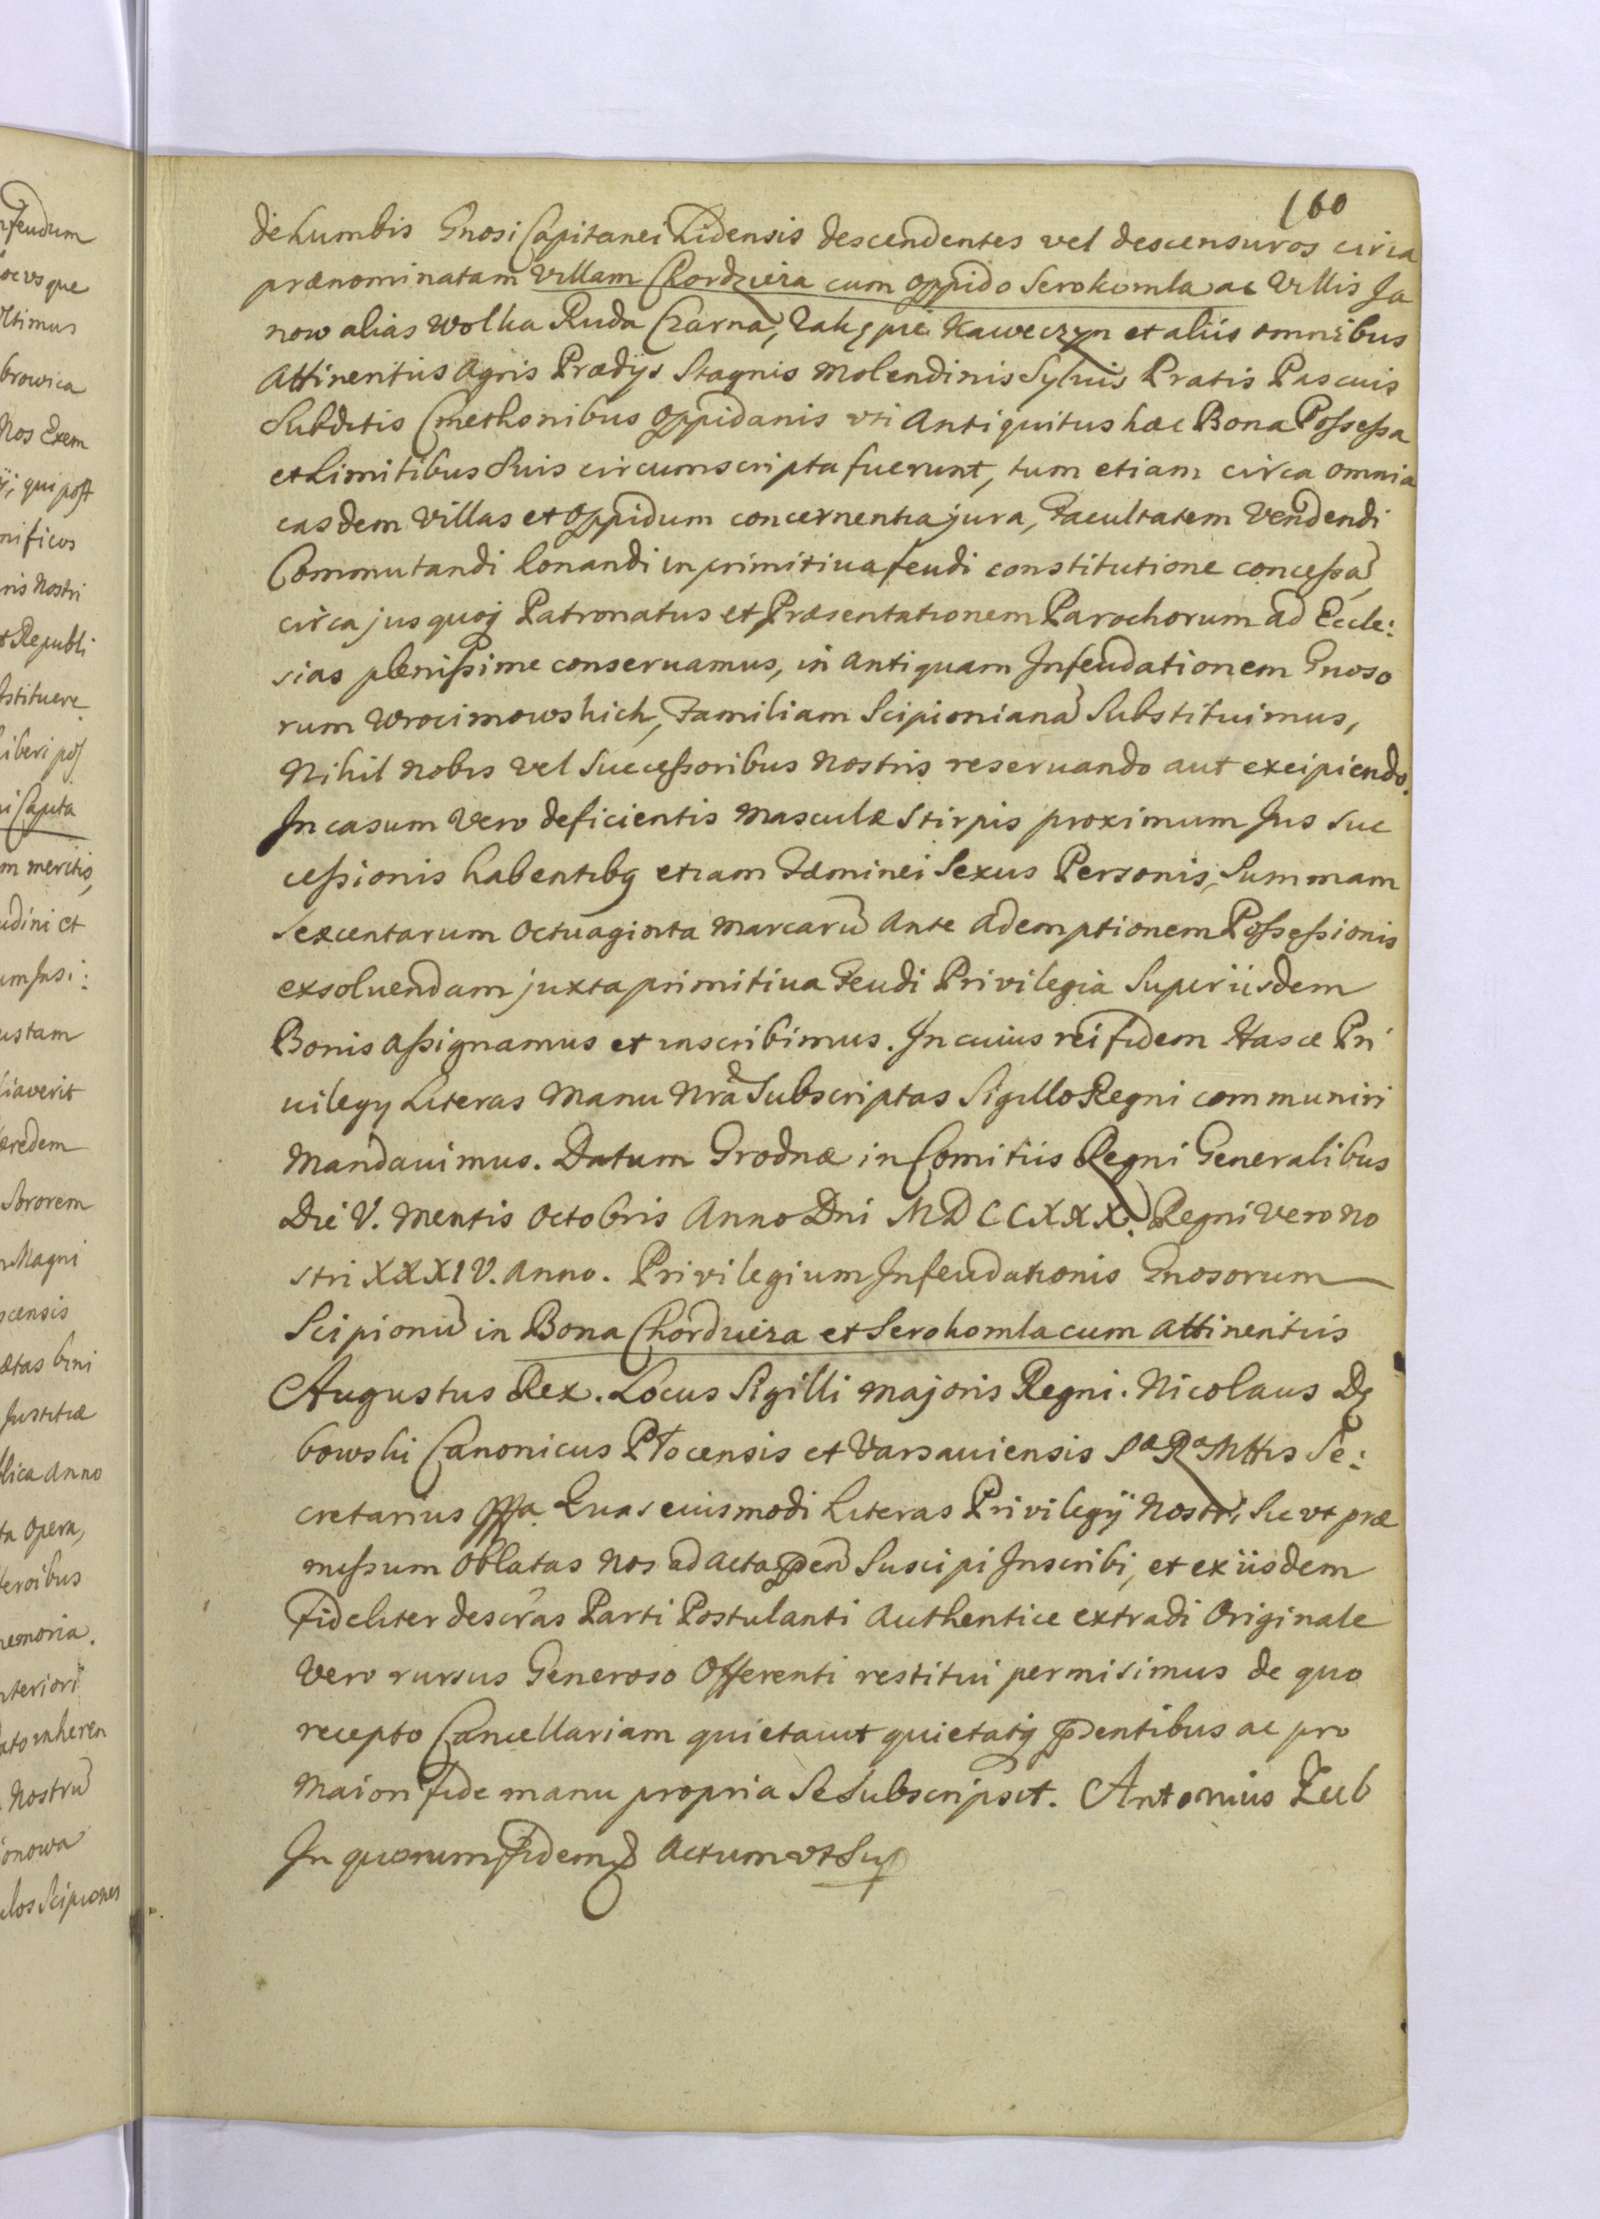 160
de Lumbis Gnosi Capitanei Lidensis descendentes vel descensuros circa
prænominatam Villam Chordzieza cum Oppido Serokomla ac Villis Ja
now alias Wolka Ruda Czarna, Zakępie Kaweczyn et aliis omnibus
Attinentiis Agris Prædijs Stagnis Molendinis Sylvis Pratis Pascuis
Subditis Cmethonibus Oppidanis uti Antiquitus hæc Bona Possessa
et Limitibus Suis circumscripta fuerunt, tum etiam circa omnia
easdem Villas et Oppidum concernentia jura, Facultatem Vendendi
Commutandi Donandi in primitiva feudi constitutione concessã,
circa jus quoq Patronatus et Præsentationem Parochorum ad Eccle:
sias plenissime conservamus, in Antiquam Infeudationem Gnoso
rum Wrocimowskich, Familiam Scipionianã Substituimus,
Nihil Nobis vel Successoribus Nostris reservando aut excipiendo.
In casum Vero deficientis Masculæ Stirpis proximum Jus Suc
cessionis habentibq etiam Fæminei Sexus Personis, Summam
Sexcentarum Octuaginta Marcarũ Ante Ademptionem Possessionis
exsoluendam juxta primitiva Feudi Privilegia Super iisdem
Bonis Assignamus et inscribimus. In cuius rei fidem Hasce Pri
uilegij Literas Manu Nrã Subscriptas Sigillo Regni communiri
Mandauimus. Datum Grodnæ in Comitiis Regni Generalibus
Die V. Mensis Octobris Anno Dni MDCCXXX. Regni Vero No
stri XXXIV. Anno. Privilegium Infeudationis Gnosorum
Scipionũ in Bona Chordzieza et Serokomla cum Attinentiis
Augustus Rex. Locus Sigilli Majoris Regni. Nicolaus Dę
bowski Canonicus Płocensis et Varsauiensis Sa Ra Mttis Se:
cretarius Mppa. Quas eiusmodi Literas Privilegij Nostri, Sic ut præ
missum Oblatas Nos ad Acta Suscipi Inscribi, et ex iisdem
Fideliter descras Parti Postulanti Authentice extradi Originale
Vero rursus Generoso Offerenti restitui permisimus de quo
recepto Cancellariam quietauit quietatq pntibus ac pro
Maiori fide manu propria Se Subscripsit. Antonius Zub
In quorum Fidem Actum ut Sup